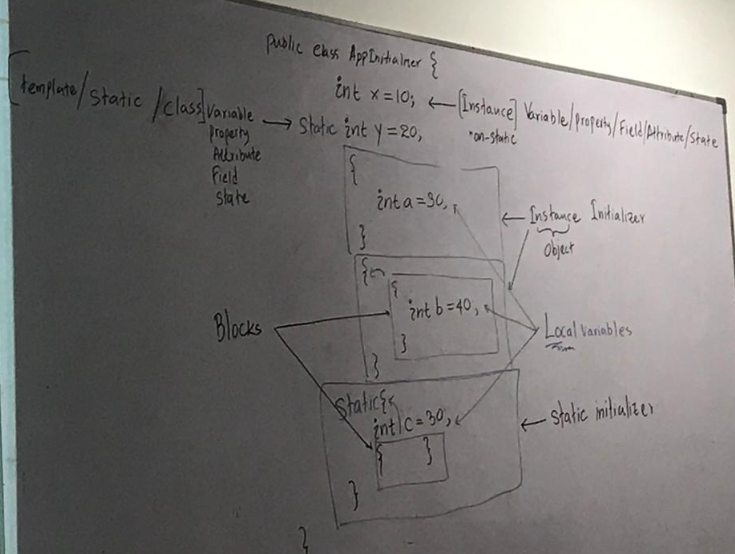 public class AppInitializer {
int x=10; ← [Instance] Variable/property/Field/Attribute/State
non-static
[template/static/class] Variable → static int y=20;
property
Attribute
Field
State
{
int a=30;
}
← Instance Initializer
Object
{
{
int b=40;
}
}
Blocks
Local variables
static{
int c=30;
{ }
}
← static initializer
}